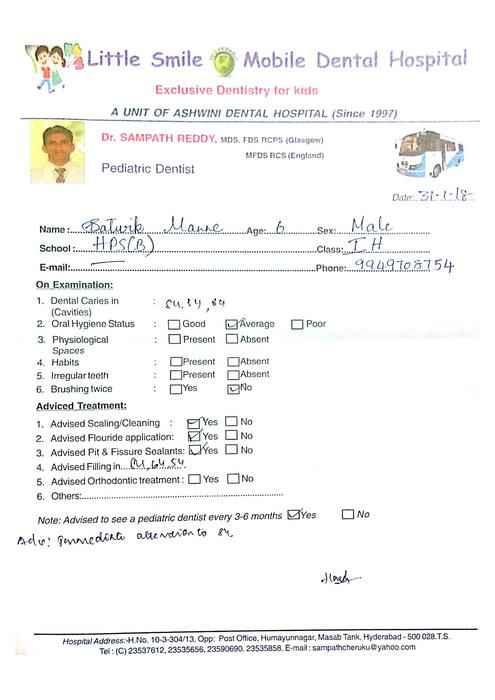 Little Smile Mobile Dental Hospital
Exclusive Dentistry for kids
A UNIT OF ASHWINI DENTAL HOSPITAL (Since 1997)
Dr. SAMPATH REDDY, MDS, FDS RCPS (Glasgow)
MFDS RCS (England)
Pediatric Dentist
Date: 31-1-18
Name: Manne Age: 6 Sex: Male
School: HPS(B) Class: I H
E-mail: Phone: 9949708754
On Examination:
1. Dental Caries in (Cavities) :
2. Oral Hygiene Status : Good Average Poor
3. Physiological Spaces : Present Absent
4. Habits : Present Absent
5. Irregular teeth : Present Absent
6. Brushing twice : Yes No
Adviced Treatment:
1. Advised Scaling/Cleaning : Yes No
2. Advised Flouride application: Yes No
3. Advised Pit & Fissure Sealants: Yes No
4. Advised Filling in 84, 64, 54
5. Advised Orthodontic treatment : Yes No
6. Others:
Note: Advised to see a pediatric dentist every 3-6 months Yes No
Adv: Immediate attention to 84.
Hospital Address:-H.No. 10-3-304/13, Opp: Post Office, Humayunnagar, Masab Tank, Hyderabad - 500 028.T.S.
Tel : (C) 23537612, 23535656, 23590690, 23535858. E-mail : sampathcheruku@yahoo.com